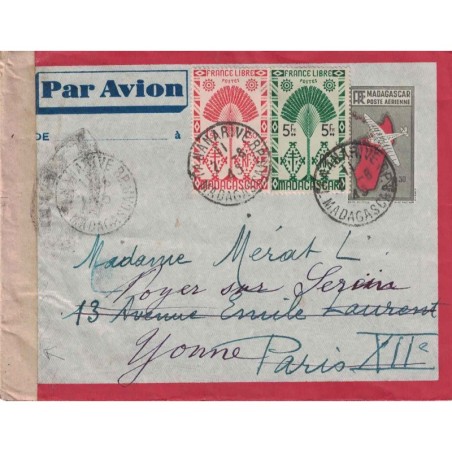 Par Avion
DE à
FRANCE LIBRE
POSTES
MADAGASCAR
FRANCE LIBRE
POSTES
5 F
5 F
MADAGASCAR
RF MADAGASCAR
POSTE AÉRIENNE
MADAGASCAR
MADAGASCAR
MADAGASCAR
Madame Mérat L.
Noyer sur Serein
13 Avenue Emile Laurent
Yonne Paris XIIe